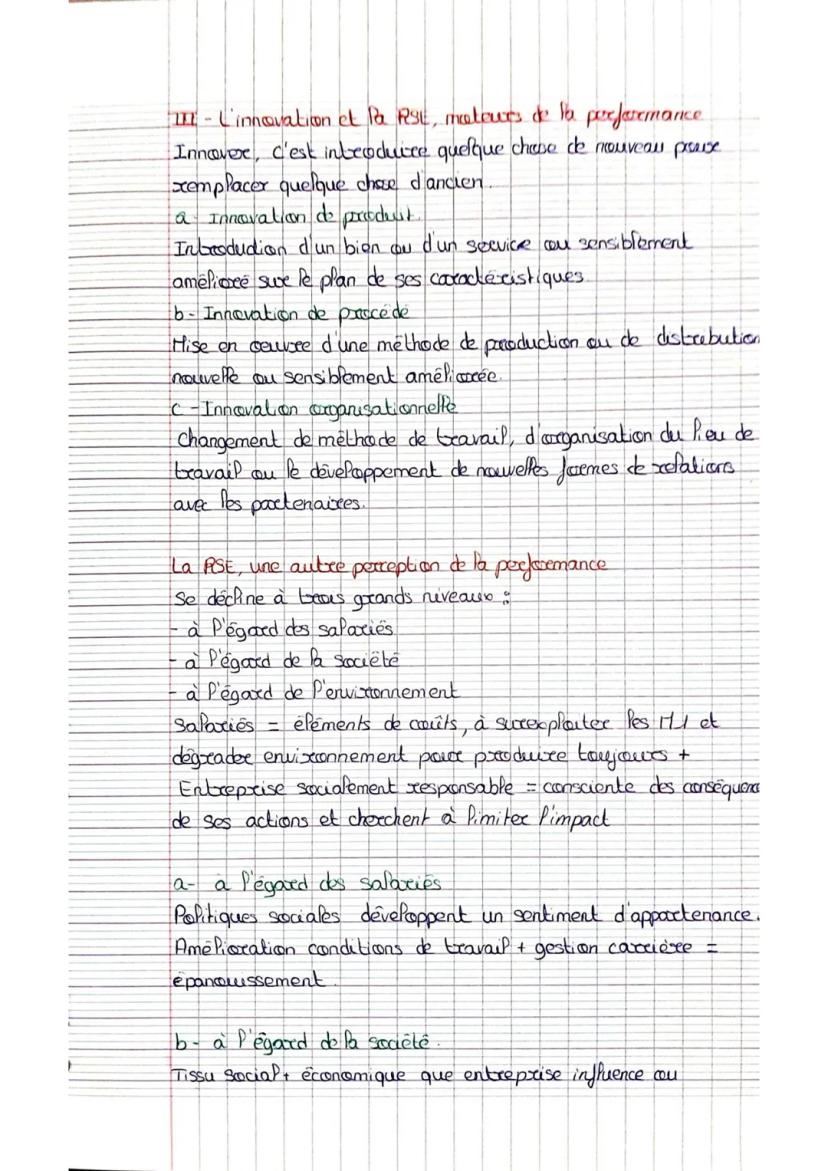 III - L'innovation et la RSE, moteurs de la performance
Innover, c'est introduire quelque chose de nouveau pour
remplacer quelque chose d'ancien.
a - Innovation de produit.
Introduction d'un bien ou d'un service ou sensiblement
amélioré sur le plan de ses caractéristiques.
b - Innovation de procédé
Mise en oeuvre d'une méthode de production ou de distribution
nouvelle ou sensiblement améliorée.
c - Innovation organisationnelle
Changement de méthode de travail, d'organisation du lieu de
travail ou le développement de nouvelles formes de relations
avec les partenaires.
La RSE, une autre perception de la performance
Se décline à trois grands niveaux :
- à l'égard des salariés
- à l'égard de la société
- à l'égard de l'environnement
Salariés = éléments de coûts, à surexploiter les et
dégrader environnement pour produire toujours +
Entreprise socialement responsable = consciente des conséquenc
de ses actions et cherchent à limiter l'impact
a- à l'égard des salariés
Politiques sociales développent un sentiment d'appartenance.
Amélioration conditions de travail + gestion carrière =
épanouissement.
b - à l'égard de la société.
Tissu social + économique que entreprise influence ou